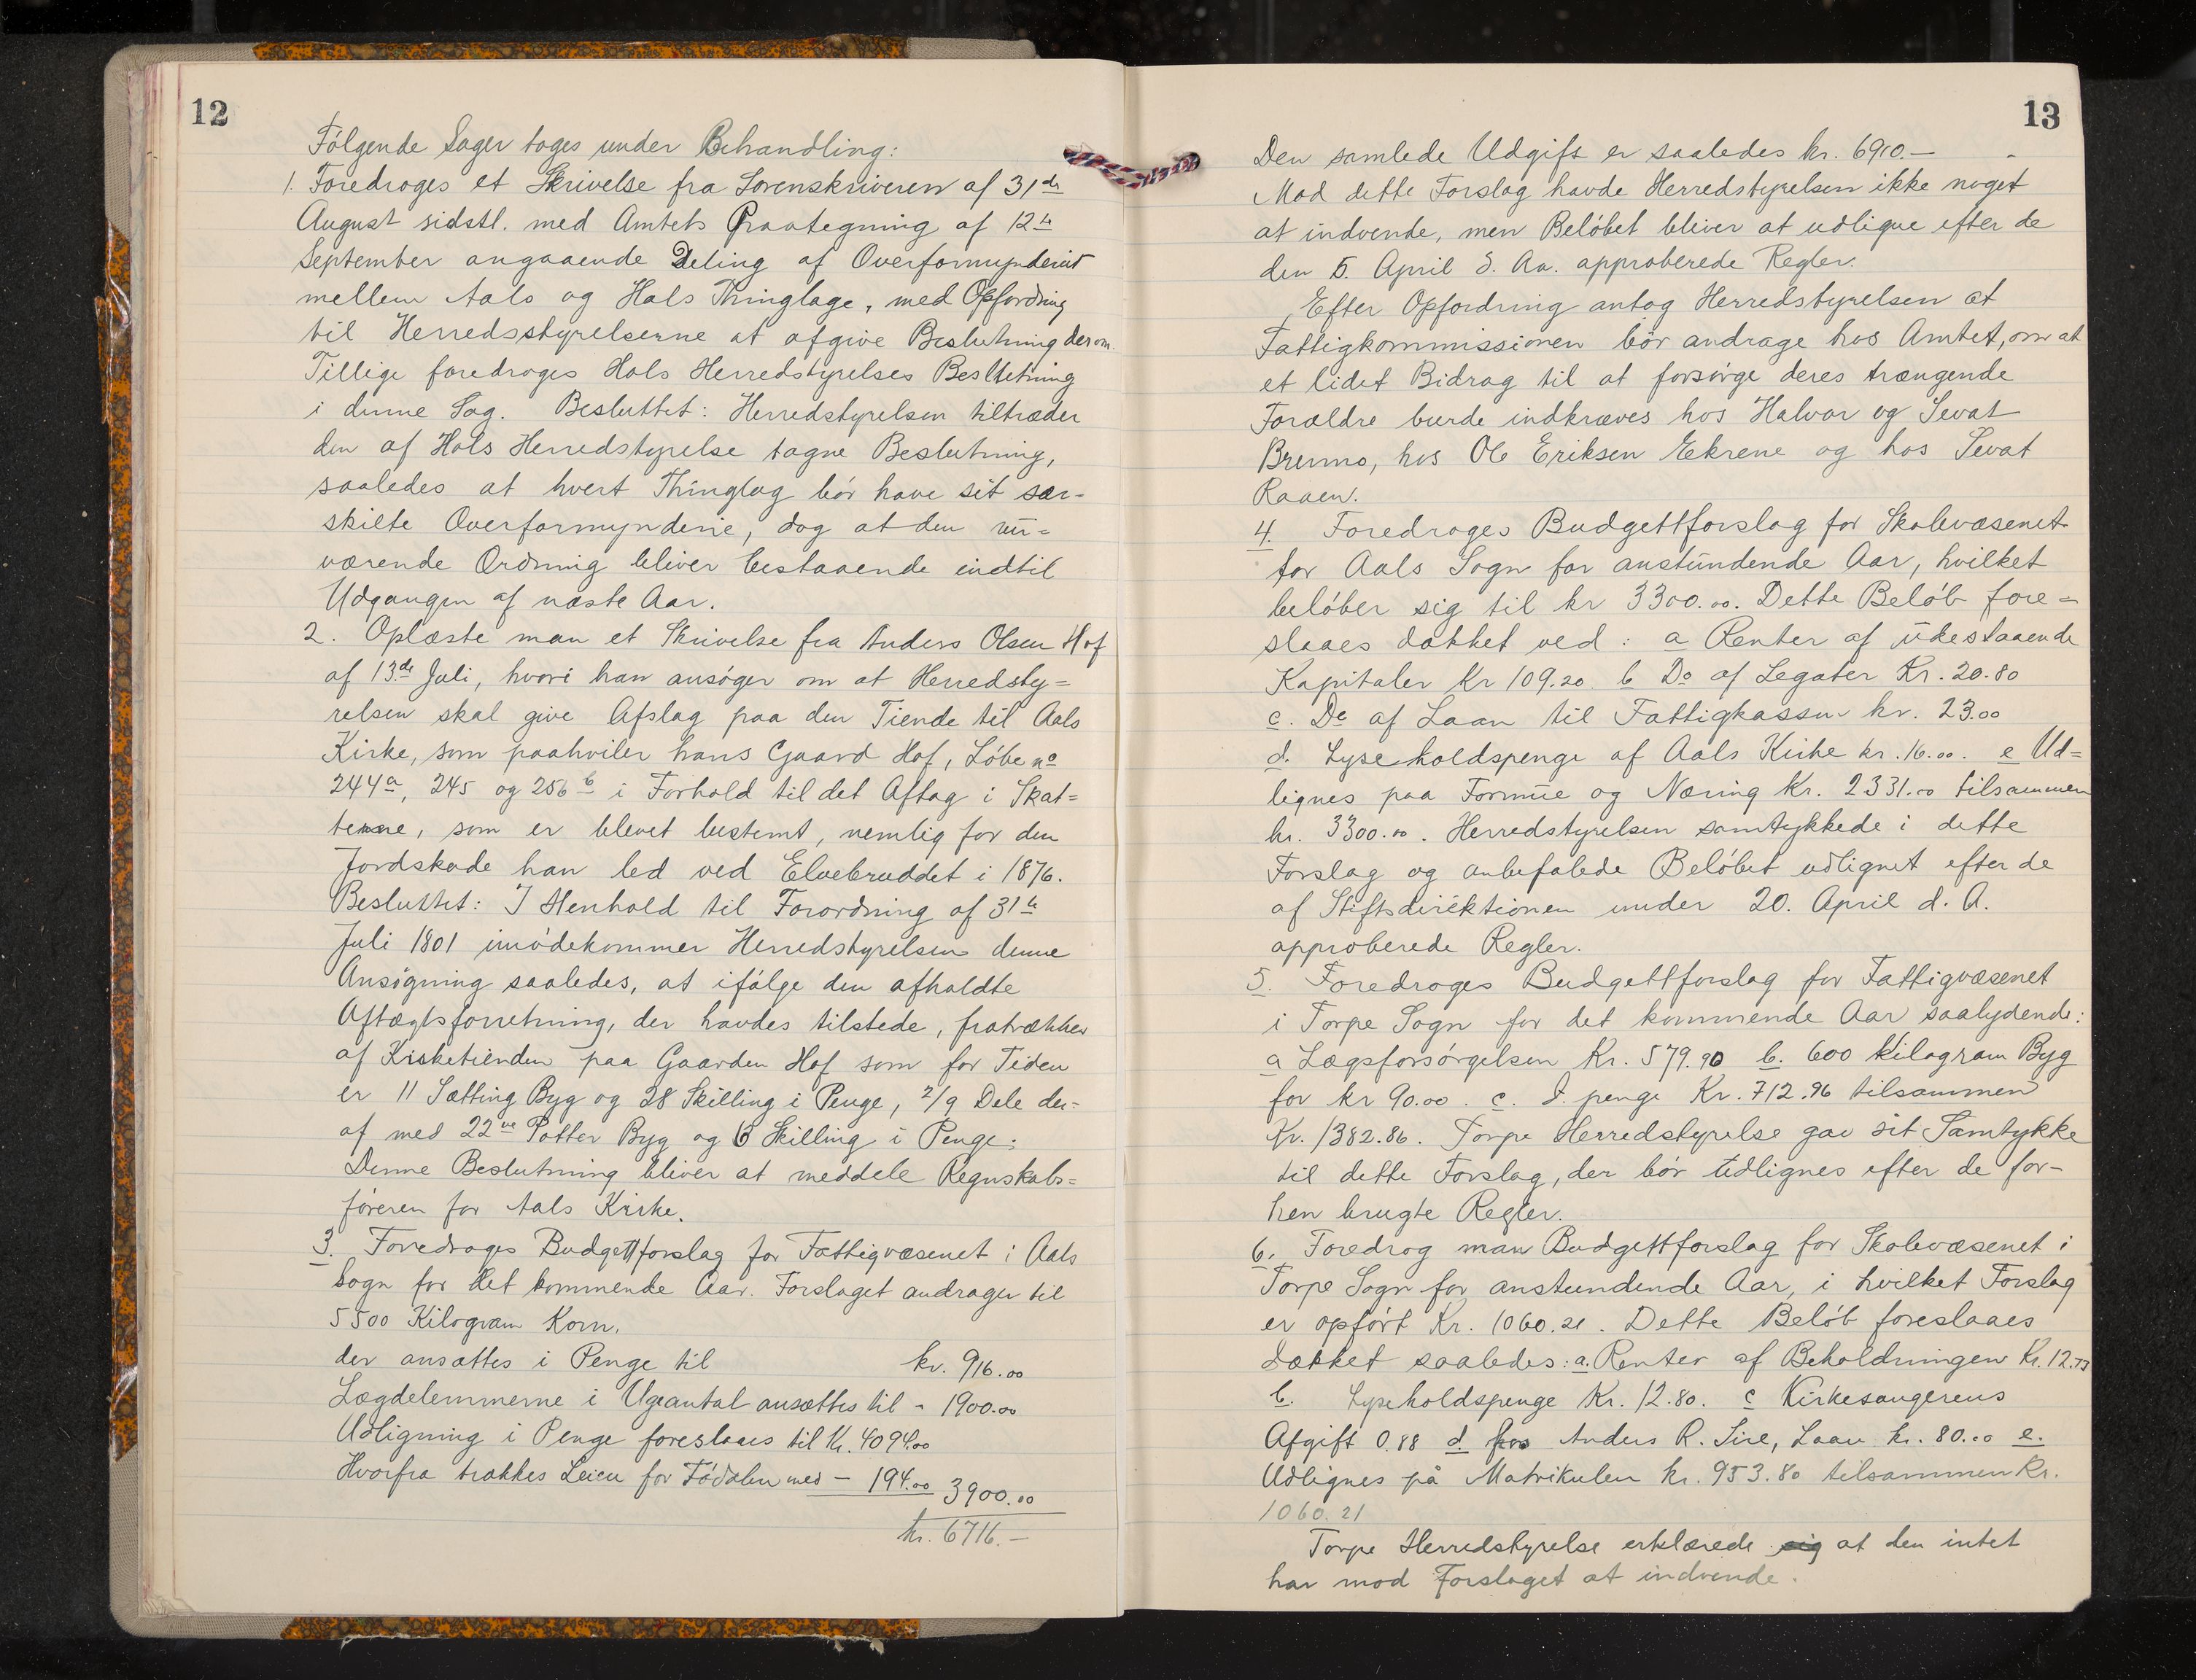 12
Følgende Sager toges under Behandling:
1. Foredroges et Skrivelse fra Sorenskriveren af 31de
August sidstl. med Amtets Paategning af 12te
September angaaende Deling af Overformynderiet
mellem Aals og Hols Thinglage, med Opfordring
til Herredsstyrelserne at afgive Beslutning derom.
Tillige foredroges Hols Herredstyrelses Beslutning
i denne Sag. Besluttet: Herredstyrelsen tiltræder
den af Hols Herredstyrelse tagne Beslutning,
saaledes at hvert Thinglag bør have sit sær-
skilte Overformynderie, dog at den nu=
værende Ordning bliver bestaaende indtil
Udgangen af næste Aar.
2. Oplæste man et Skrivelse fra Anders Olsen Hof
af 13de Juli, hvori han ansøger om at Herredsty=
relsen skal give Afslag paa den Tiende til Aals
Kirke, som paahviler hans Gaard Hof, Løbe no
244a, 245 og 256b i Forhold til det Aftag i Skat=
tene, som er blevet bestemt, nemlig for den
Jordskade han led ved Elvebruddet i 1876.
Besluttet: I Henhold til Forordning af 31te
Juli 1801 imødekommer Herredstyrelsen denne
Ansøgning saaledes, at ifølge den afholdte
Aftægtsforretning, der havdes tilstede, fratrækkes
af Kirketienden paa Gaarden Hof som for Tiden
er 11 Sætting Byg og 28 Skilling i Penge, 2/9 Dele der=
af med 22ve Potter Byg og 6 Skilling i Penge.
Denne Beslutning bliver at meddele Regnskabs=
føreren for Aals Kirke.
3. Foredroges Budgettforslag for Fattigvæsenet i Aals
Sogn for det kommende Aar. Forslaget andrager til
5500 Kilogram Korn.
der ansættes i Penge til kr. 916.00
Lægdelemmerne i Ugeantal ansættes til - 1900.00
Udligning i Penge foreslaaes til Kr. 4094.00
Hvorfra trækkes Leien for Fødalen med - 194.00 3900.00
kr. 6716.-
13
Den samlede Udgift er saaledes kr. 6910.-
Mod dette Forslag havde Herredstyrelsen ikke noget
at indvende, men Beløbet bliver at udligne efter de
den 5. April d. Aa. approberede Regler.
Efter Opfordring antog Herredstyrelsen at
Fattigkommissionen bør andrage hos Amtet, om at
et lidet Bidrag til at forsørge deres trængende
Forældre burde indkræves hos Halvor og Sevat
Brenno, hos Ole Eriksen Ekrene og hos Sevat
Raaen.
4. Foredroges Budgettforslag for Skolevæsenet
for Aals Sogn for anstundende Aar, hvilket
beløber sig til kr 3300.00. Dette Beløb fore=
slaaes dækket ved: a Renter af udestaaende
Kapitaler Kr 109.20 b Do af Legater Kr. 20.80
c. Do af Laan til Fattigkassen kr. 23.00
d. Lyseholdspenge af Aals Kirke kr. 16.00. e Ud=
lignes paa Formue og Næring Kr. 2331.00 tilsammen
kr. 3300.00. Herredstyrelsen samtykkede i dette
Forslag og anbefalede Beløbet udlignet efter de
af Stiftsdirektionen under 20. April d. A.
approberede Regler.
5. Foredroges Budgettforslag for Fattigvæsenet
i Torpe Sogn for det kommende Aar saalydende:
a Lægsforsørgelsen Kr. 579.90 b. 600 kilogram Byg
for kr 90.00. c. I penge Kr. 712.96 tilsammen
Kr. 1382.86. Torpe Herredstyrelse gav sit Samtykke
til dette Forslag, der bør udlignes efter de for-
hen brugte Regler.
6. Foredrog man Budgettforslag for Skolevæsenet i
Torpe Sogn for anstundende Aar, i hvilket Forslag
er opført Kr. 1060.21. Dette Beløb foreslaaes
dækket saaledes: a. Renter af Beholdningen Kr. 12.73
b. Lyseholdspenge Kr. 12.80. c Kirkesangerens
Afgift 0.88 d. hos Anders R. Sire, Laan kr. 80.00 e.
Udlignes på Matrikulen kr. 953.80 tilsammen Kr.
1060.21
Torpe Herredstyrelse erklærede sig at den intet
har mod Forslaget at indvende.